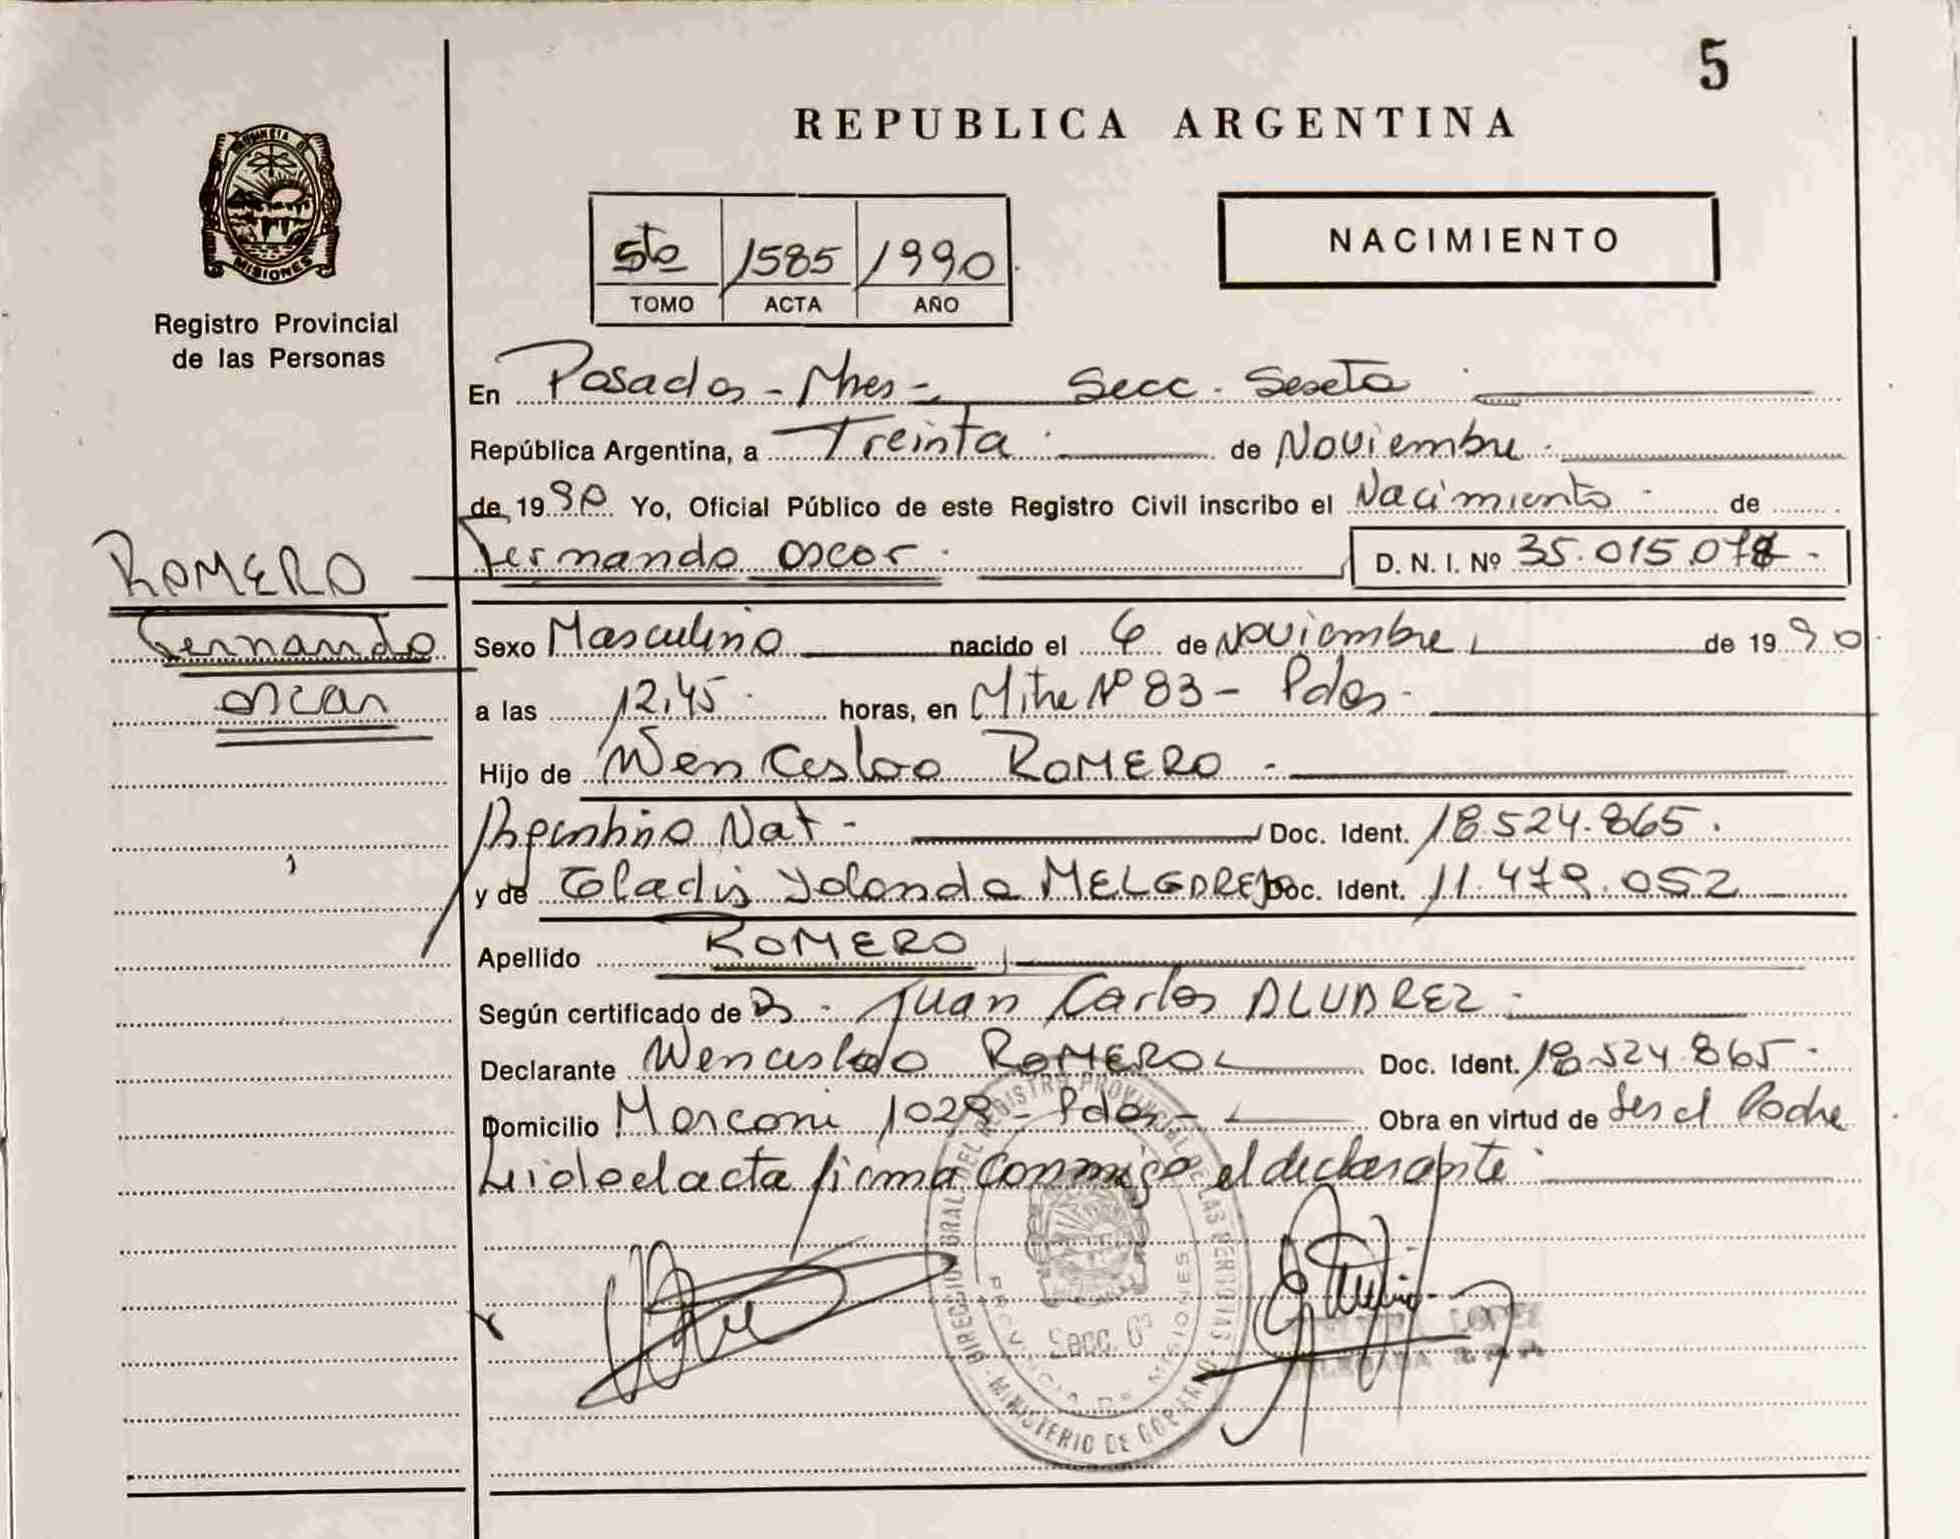 5
REPUBLICA ARGENTINA
PROVINCIA DE
MISIONES
Registro Provincial
de las Personas
5to 1585 1990
TOMO ACTA AÑO
NACIMIENTO
En Posadas - Mnes - Secc. Sexta
República Argentina, a Treinta de Noviembre
de 1990 Yo, Oficial Público de este Registro Civil inscribo el Nacimiento de
Fernando Oscar D. N. I. Nº 35.015.07
ROMERO
Fernando
Oscar
Sexo Masculino nacido el 6 de Noviembre de 1990
a las 12,45 horas, en Mitre Nº 83 - Pdas.
Hijo de Wenceslao ROMERO -
Argentino Nat - Doc. Ident. 18.524.865.
y de Gladis Yolanda MELGAREJO Doc. Ident. 11.479.052
Apellido ROMERO
Según certificado de Dr. Juan Carlos ALVAREZ -
Declarante Wenceslao ROMERO Doc. Ident. 18.524.865.
Domicilio Marconi 1028 - Pdas - Obra en virtud de Ser el Padre
Leido el acta firma conmigo el declarante
DIRECCION GRAL. DEL REGISTRO PROVINCIAL DE LAS PERSONAS
MINISTERIO DE GOBIERNO
PROVINCIA DE MISIONES
Secc. 6ª
LOPEZ
DELEGADA